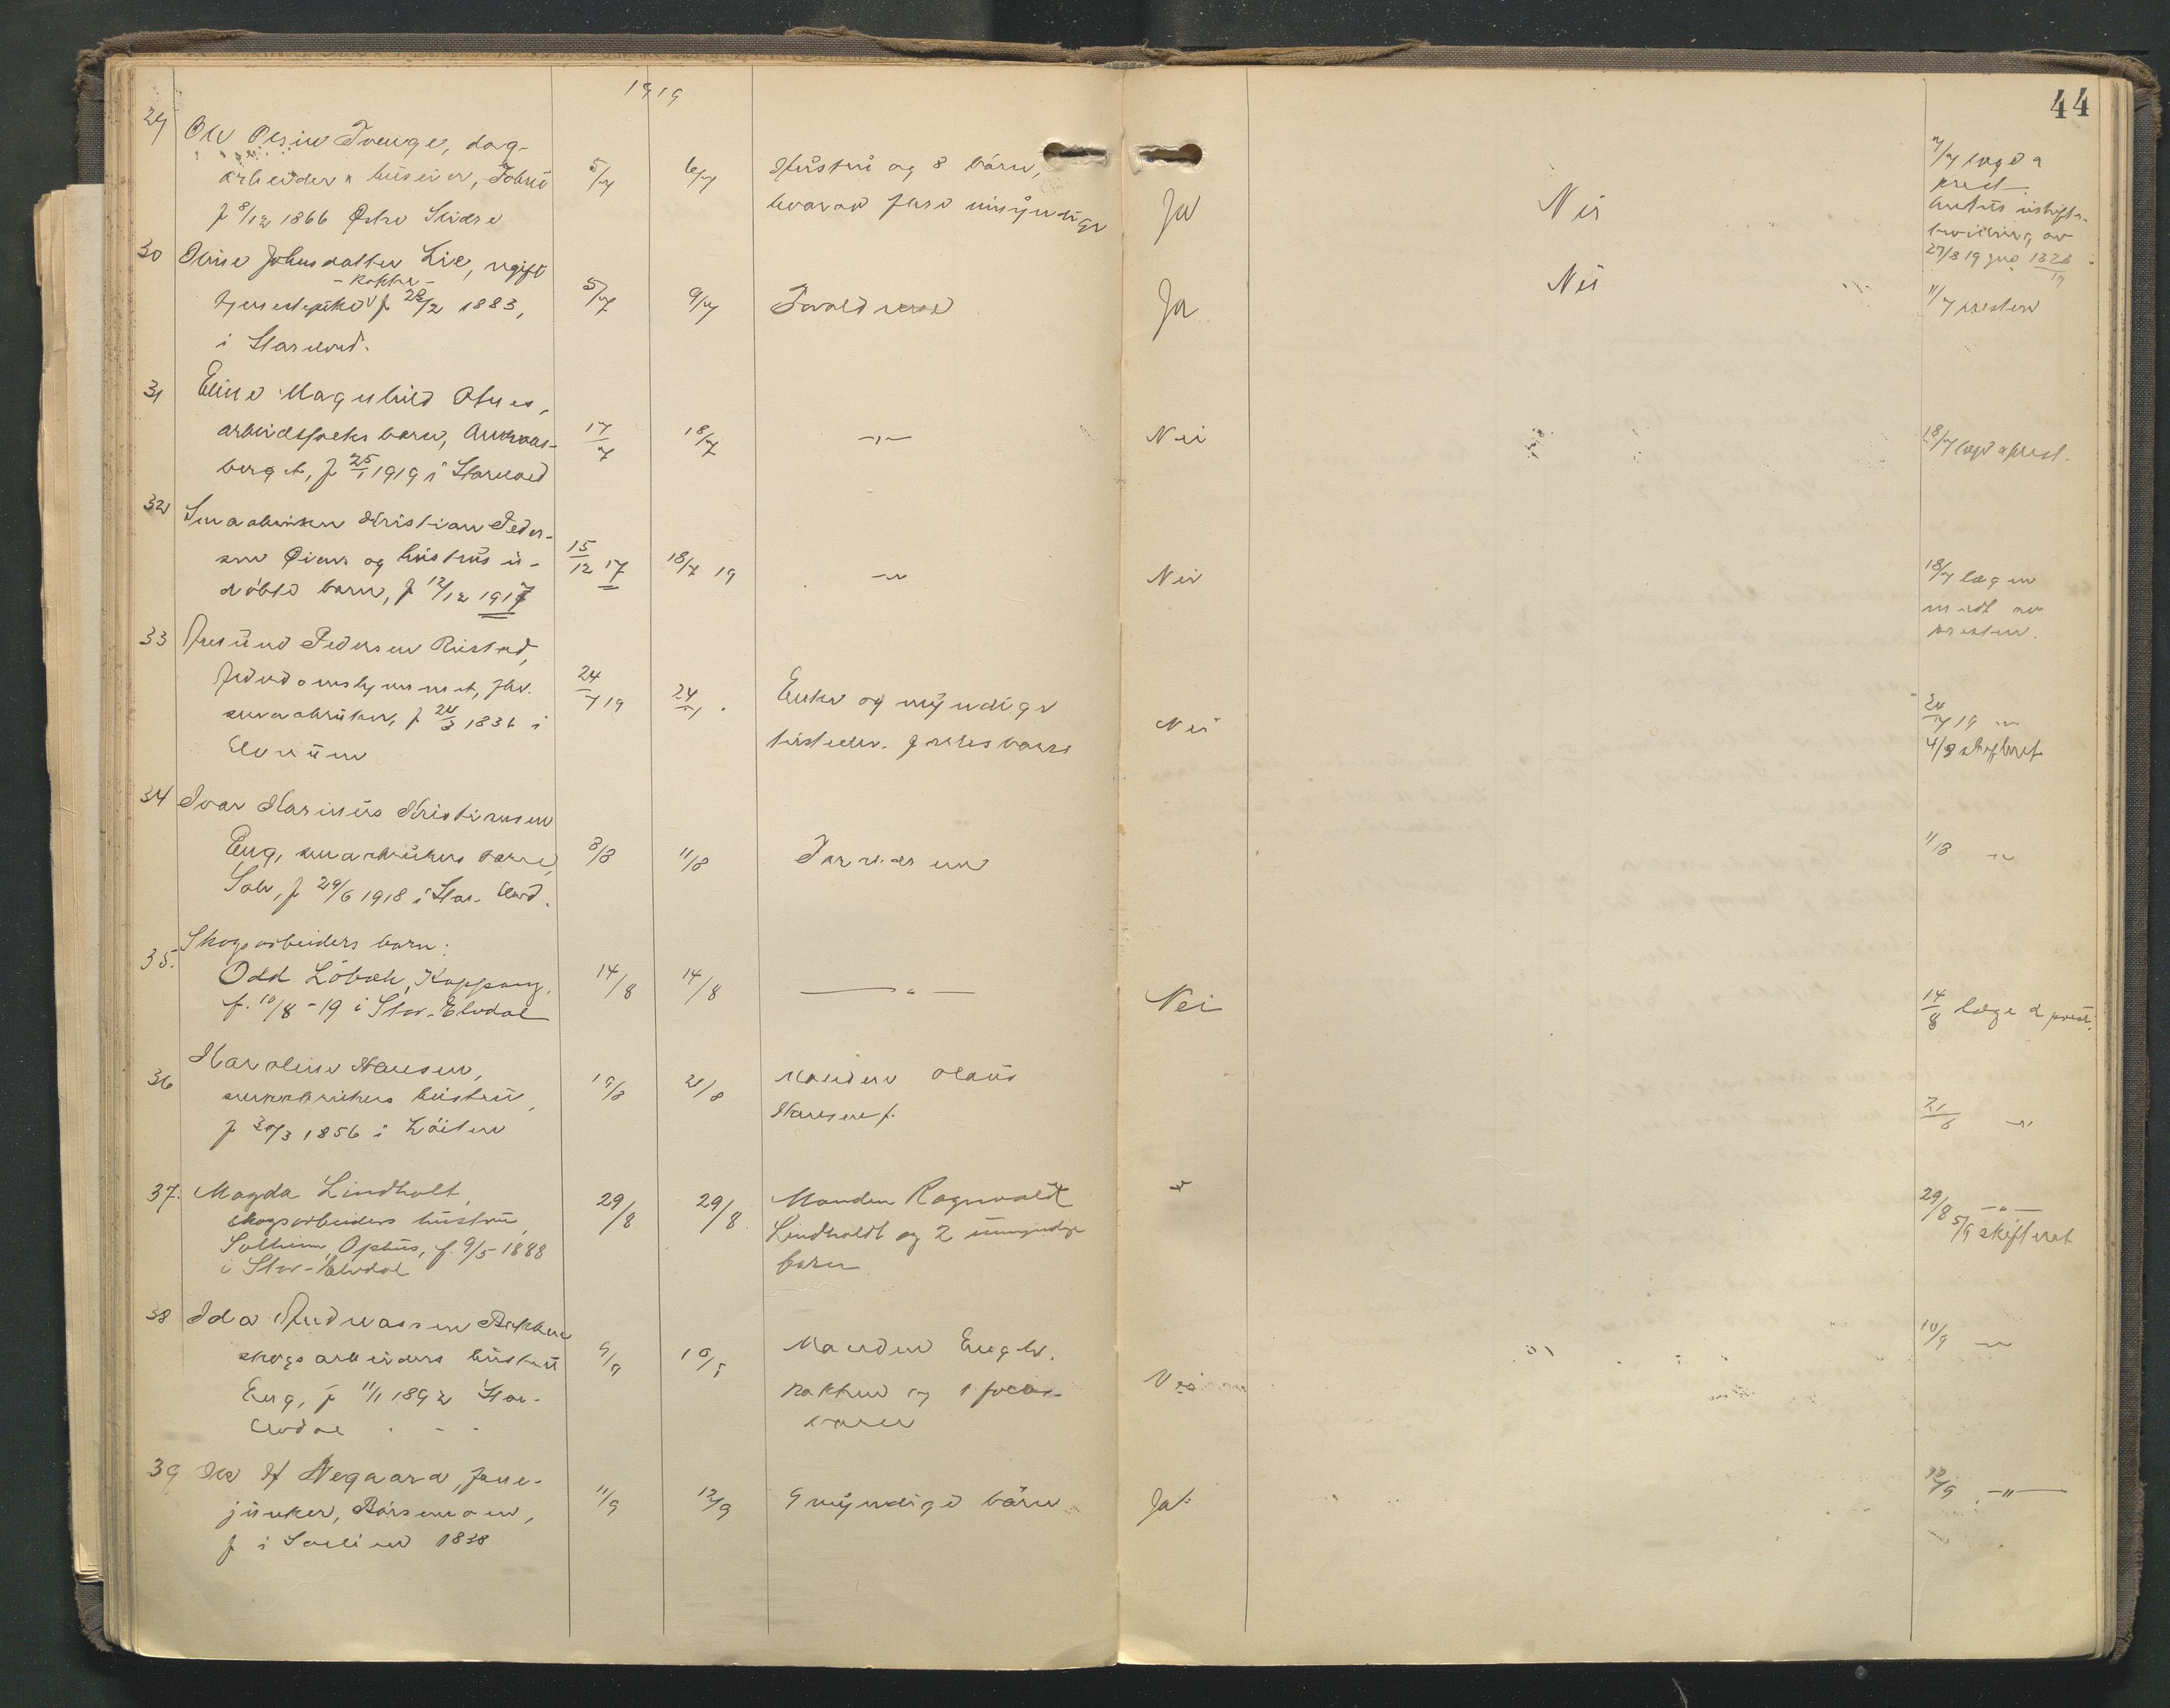 1919
44
29
Ole Olsen Tvenge, dag-
arbeider & huseier,
f 8/12 1866 Østre Slidre
5/7
6/7
Hustru og 8 börn,
hvorav flere umyndige
Ja
Nei
7/7 læge &
prest
27/8 19
30
Johnsdatter Lie, ugift
- kokke -
tjenestepike f 28/2 1883,
i Storelvd.
5/7
9/7
Forældrene
Ja
Nei
11/7 presten
31
Eline Magnhild Otnes,
arbeidsfolks barn,
berget, f 25/1 1919 i Storelvd
17/7
18/7
-"-
Nei
18/7 læge & prest.
32
Smaabruker Kristian Peder-
sen Øien og hustrus u-
döbte barn, f 12/12 1917
15/12 17
18/7 19
-"-
Nei
18/7 lægen
medt av
presten.
33
Pedersen Ristad,
fhv.
smaabruker, f 24/3 1836 i
Elverum
24/7 19
24/7.
Enke og myndige
Nei
24/7 19 -"-
4/8 skifteret
34
Ivar Marinius Kristiansen
Eng, smaabrukers barn,
f 29/6 1918 i Stor-Elvd.
8/8
11/8
Foreldrene
11/8 -"-
35.
Skogsarbeiders barn:
Odd Löbak, Koppang,
f. 10/8-19 i Stor-Elvdal
14/8
14/8
— " —
Nei
14/8 læge & prest.
36
Karoline Hansen,
smaabrukers hustru,
f 30/3 1856 i Löiten
19/8
21/8
Manden Olaus
Hansen f.
21/8 -"-
37.
Magda Lindholt,
skogsarbeiders hustru,
Solheim, Ophus, f. 9/5-1888
i Stor-Elvdal
29/8
29/8.
Manden Ragnvald
Lindholdt og 2 umyndige
barn
-"-
29/8 -"-
5/9 skifteret
38
Ida Andreassen Bakken
skogsarbeiders hustru
Eng, f 11/1 1892 Stor-
Elvdal
9/9
10/9
Manden Engebr.
Bakken og 1
barn
Nei
10/9 -"-
39
Negaard,
junker,
f i Sollien 1838
11/9
12/9
9 myndige börn
Ja
12/9 -"-